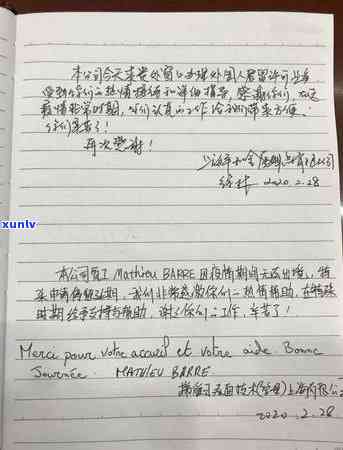 本公司今天来贵处窗口办理外国人居留许可业务
受到你们的热情接待和详细指导,感谢你们,在这
疫情非常时期,你们认真的工作给我们带来方便。
你们辛苦了!
再次感谢!
2020.2.28
本公司员工 Mathieu BARRE 因疫情期间无法出境,特
来申请停留延期,我们非常感激你们的热情帮助,在特殊
时期给予支持与帮助,谢谢你们的工作,辛苦了!
Merci pour votre accueil et votre aide. Bonne
Journée. MATHIEU BARRE
表面技术(管理)上海有限公司
2020.2.28
xunlv